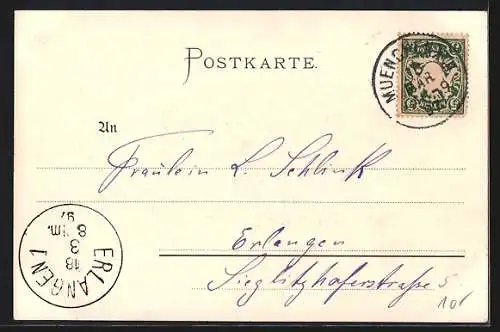 POSTKARTE.
MUENCHEN
An
Fräulein L. Schlink
Erlangen
Sieglitzhoferstraße 5
10f
ERLANGEN 1
18
3
8 Vm.
97